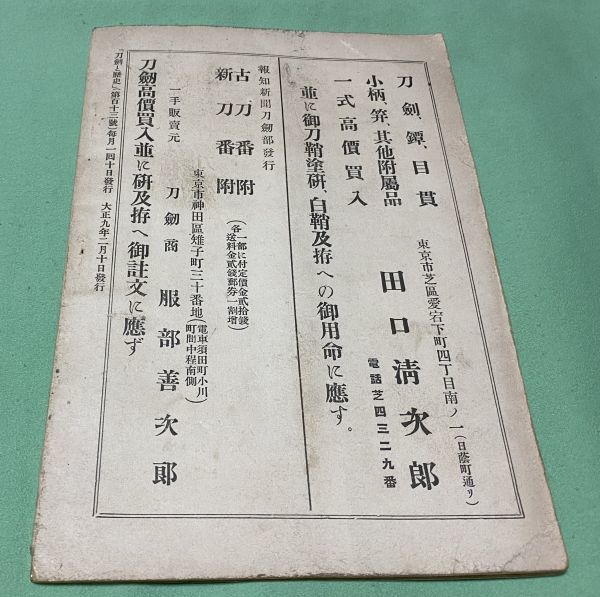 刀劍、鐔、目貫
小柄、笄、其他附屬品
一式高價買入
東京市芝區愛宕下町四丁目南ノ一(日蔭町通リ)
田口清次郎
電話芝四三二九番
並に御刀鞘塗研、白鞘及拵への御用命に應ず。
報知新聞刀劍部發行
古刀番附
新刀番附
(各一部に付定價金貳拾錢
送料金貳錢郵券一割增)
一手販賣元
東京市神田區雉子町三十番地(電車須田町小川
町間中程南側)
刀劍商 服部善次郎
刀劔高價買入並に研及拵へ御註文に應ず
「刀劍と歷史」第百十三號(每月一回十日發行 大正九年二月十日發行